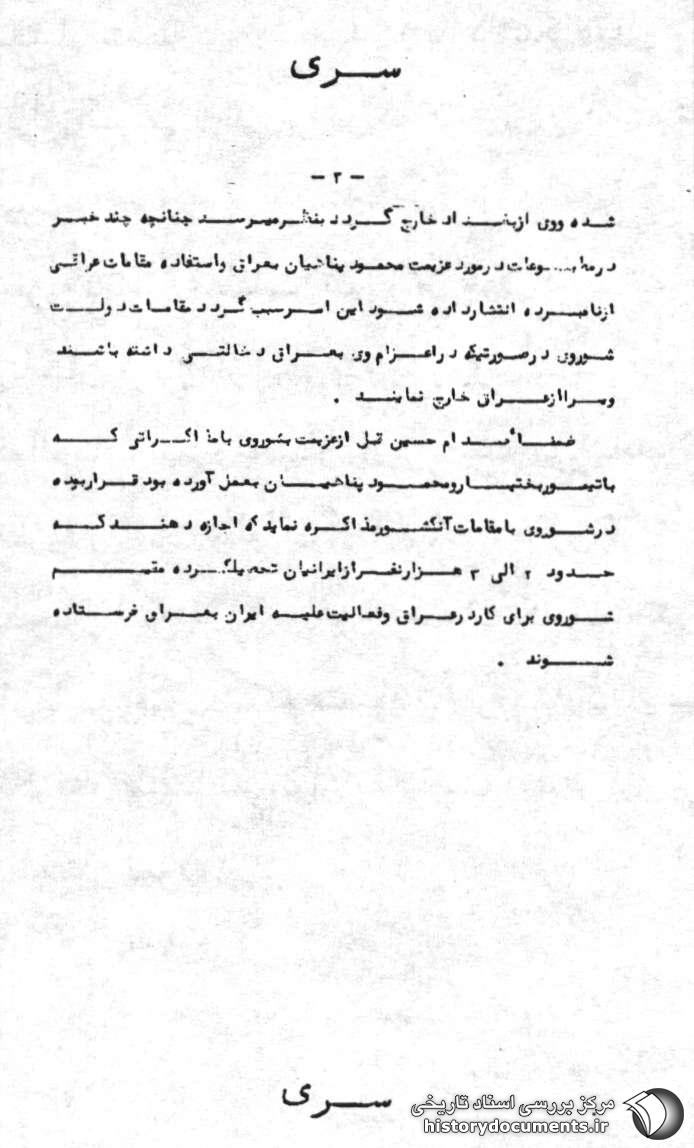 سری
- ۳ -
شده ووی از بغداد خارج گردد بنظر میرسد چنانچه چند خبر
در مطبوعات در مورد عزیمت محمود پناهیان بعراق واستفاده مقامات عراقی
از نامبرده انتشار داده شود این امر سبب گردد مقامات دولت
شوروی در صورتیکه در اعزام وی بعراق دخالتی داشته باشند
ویرا از عراق خارج نمایند .
ضمناً صدام حسین قبل از عزیمت بشوروی با مذاکراتی که
با تیمور بختیار و محمود پناهیان بعمل آورده بود قرار بوده
در شوروی با مقامات آنکشور مذاکره نماید که اجازه دهند که
حدود ۲ الی ۳ هزار نفر از ایرانیان تحصیلکرده مقیم
شوروی برای کار در عراق وفعالیت علیه ایران بعراق فرستاده
شوند .
سری
مرکز بررسی اسناد تاریخی
historydocuments.ir